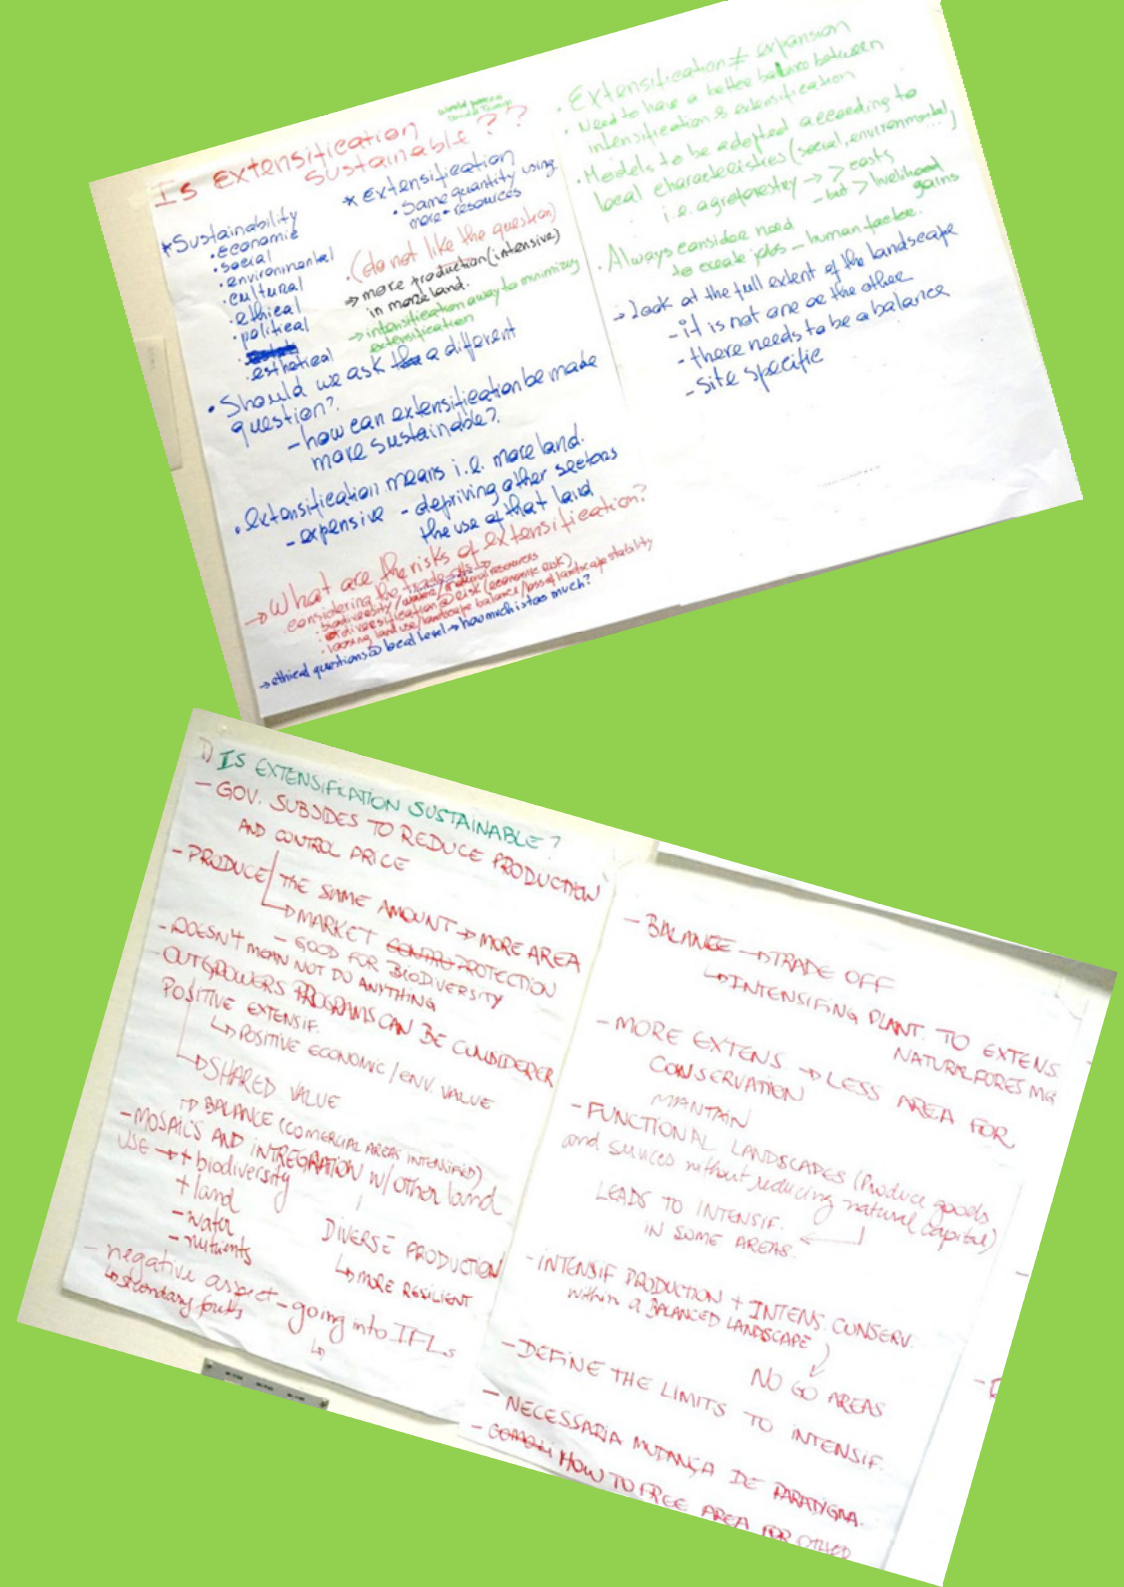 IS EXTENSIFICATION
SUSTAINABLE??
*Sustainability
• economic
• social
• environmental
• cultural
• ethical
• political
• esthetical
* Extensification
• Same quantity using
more resources
• (do not like the question)
→ more production (intensive)
in more land.
→ intensification a way to minimizing
extensification
• Should we ask a different
question?
- how can extensification be made
more sustainable?
• extensification means i.e. more land.
- expensive - depriving other sectors
the use of that land
→ What are the risks of extensification?
considering the trade offs →
• biodiversity / water / natural resources
• diversification @ risk (economic risk)
• loosing land use/landscape balance/loss of landscape stability
→ ethical questions @ local level → how much is too much?
• Extensification ≠ expansion
• Need to have a better balance between
intensification & extensification
• Models to be adopted according to
local characteristics (social, environmental, ...)
i.e. agroforestry → > costs
- but > livelihood
gains
• Always consider need
to create jobs - human factor.
→ Look at the full extent of the landscape
- it is not one or the other
- there needs to be a balance
- site specific
1) IS EXTENSIFICATION SUSTAINABLE?
- GOV. SUBSIDES TO REDUCE PRODUCTION
AND CONTROL PRICE
- PRODUCE THE SAME AMOUNT → MORE AREA
↳ MARKET PROTECTION
- GOOD FOR BIODIVERSITY
- DOESN'T MEAN NOT DO ANYTHING
OUTGROWERS PROGRAMS CAN BE CONSIDERER
POSITIVE EXTENSIF.
↳ POSITIVE ECONOMIC / ENV. VALUE
↳ SHARED VALUE
→ BALANCE (COMERCIAL AREAS INTENSIFIED)
- MOSAICS AND INTREGRATION w/ other land
USE → + biodiversity
+ land
- water
- nutrients
DIVERSE PRODUCTION
↳ MORE RESILIENT
- negative aspect - going into IFLs
- BALANCE → TRADE OFF
↳ INTENSIFING PLANT. TO EXTENS.
NATURAL FORES MG
- MORE EXTENS. → LESS AREA FOR
CONSERVATION
MANTAIN
- FUNCTIONAL LANDSCAPES (Produce goods
and services without reducing natural capital)
LEADS TO INTENSIF.
IN SOME AREAS.
- INTENSIF PRODUCTION + INTENS. CONSERV.
within a BALANCED LANDSCAPE
NO GO AREAS
- DEFINE THE LIMITS TO INTENSIF.
- NECESSARIA MUDANÇA DE PARADIGMA.
- HOW TO FREE AREA FOR OTHER